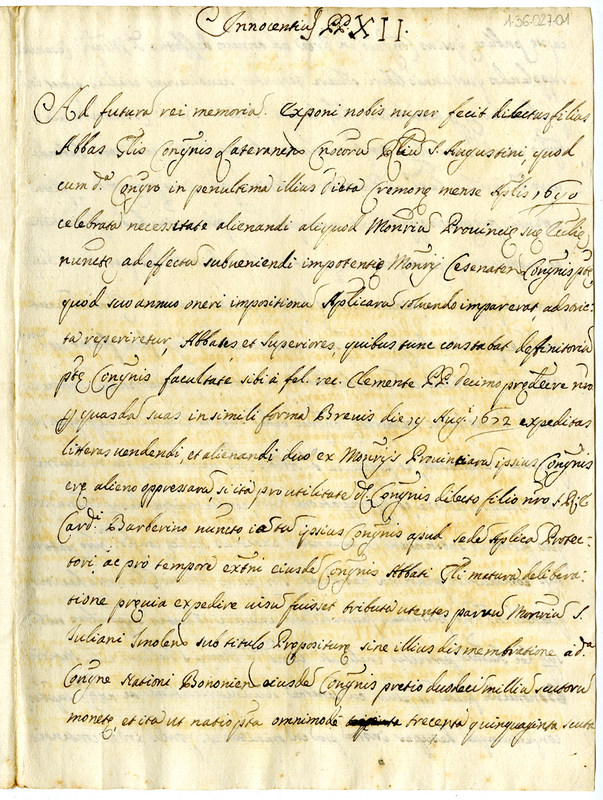 Innocentius PP XII.
1-36-027-01
Ad futurã rei memoriã. Exponi nobis nuper fecit dilectus filius
Abbas Glis Congnis Lateranen Cnicorũ S. Augustini, quod
cum d.ª Congro in penultima illius Dieta Cremonę mense Aplis 1690
celebrata necessitate alienandi aliquod Monriũ Provincię suę
nuncte ad effectũ subveniendi impotentię Monrij Cesenaten Congnis ptę
quod suo annuo oneri impositionũ Aplicarũ solvendo impar erat adstric-
ta reperiretur, Abbates et Superiores, quibus tunc constabat deffinitoriũ
ptę Congnis facultate sibi à fel. rec. Clemente PP. decimo prędecre nro
p quasdã suas in simili forma Brevis die 19 Aug.ⁱ 1672 expeditas
litteras vendendi, et alienandi duo ex Monrijs Provinciarũ ipsius Congnis
erę alieno oppressarũ, si ita pro utilitate d. Congnis dilecto filio nro
Card.ⁱ Barberino nuncto ipsius Congnis apud sedẽ Aplicã Protec-
tori, ac pro tempore extñi eiusdẽ Congnis Abbati Gli matura delibera-
tione prę̨via expedire visũ fuisset, tributa utentes parvũ Monriũ S.
Juliani Imolen sub titulo Prępositurę sine illius dismembratione ad.ª
Congne Nationi Bononien eiusdẽ Congnis pretio duodeci milliũ scutorũ
monetę, et ita ut natio pta omnimodè trecenta quinquaginta scuta